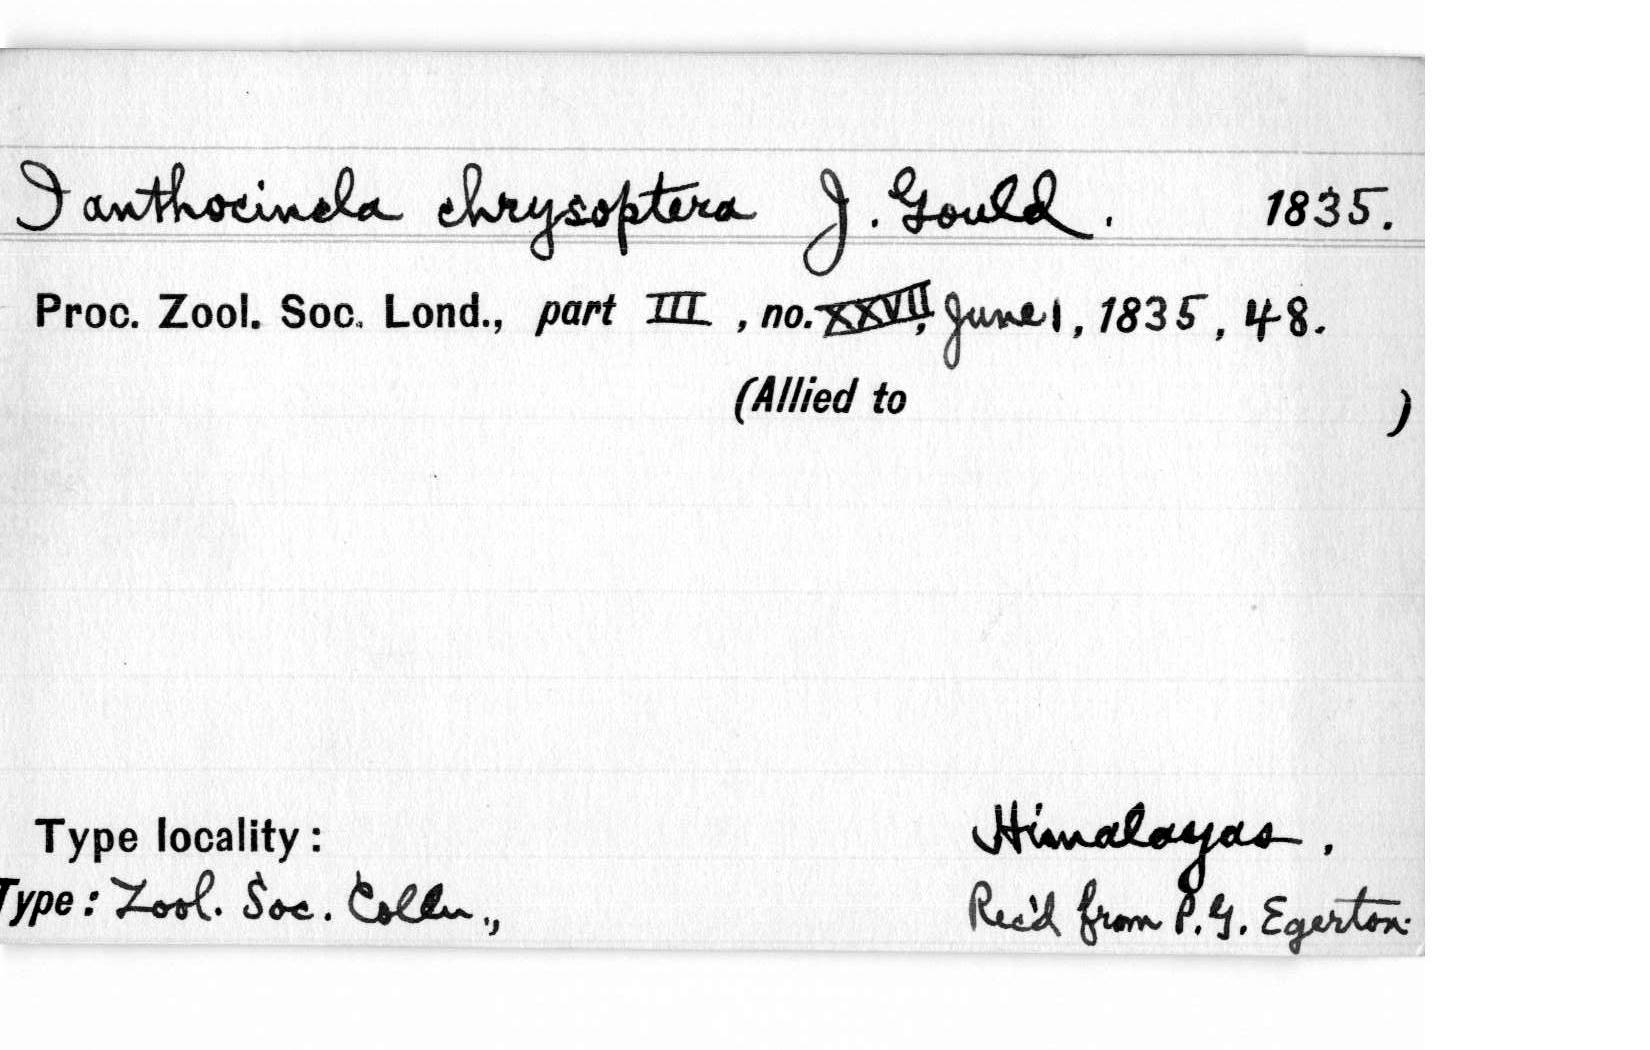 Ianthocincla chrysoptera J. Gould. 1835.
Proc. Zool. Soc. Lond., part III, no. XXVII, June 1, 1835, 48.
(Allied to )
Type locality: Himalayas.
Type: Zool. Soc. Colln., Rec'd from P. G. Egerton.